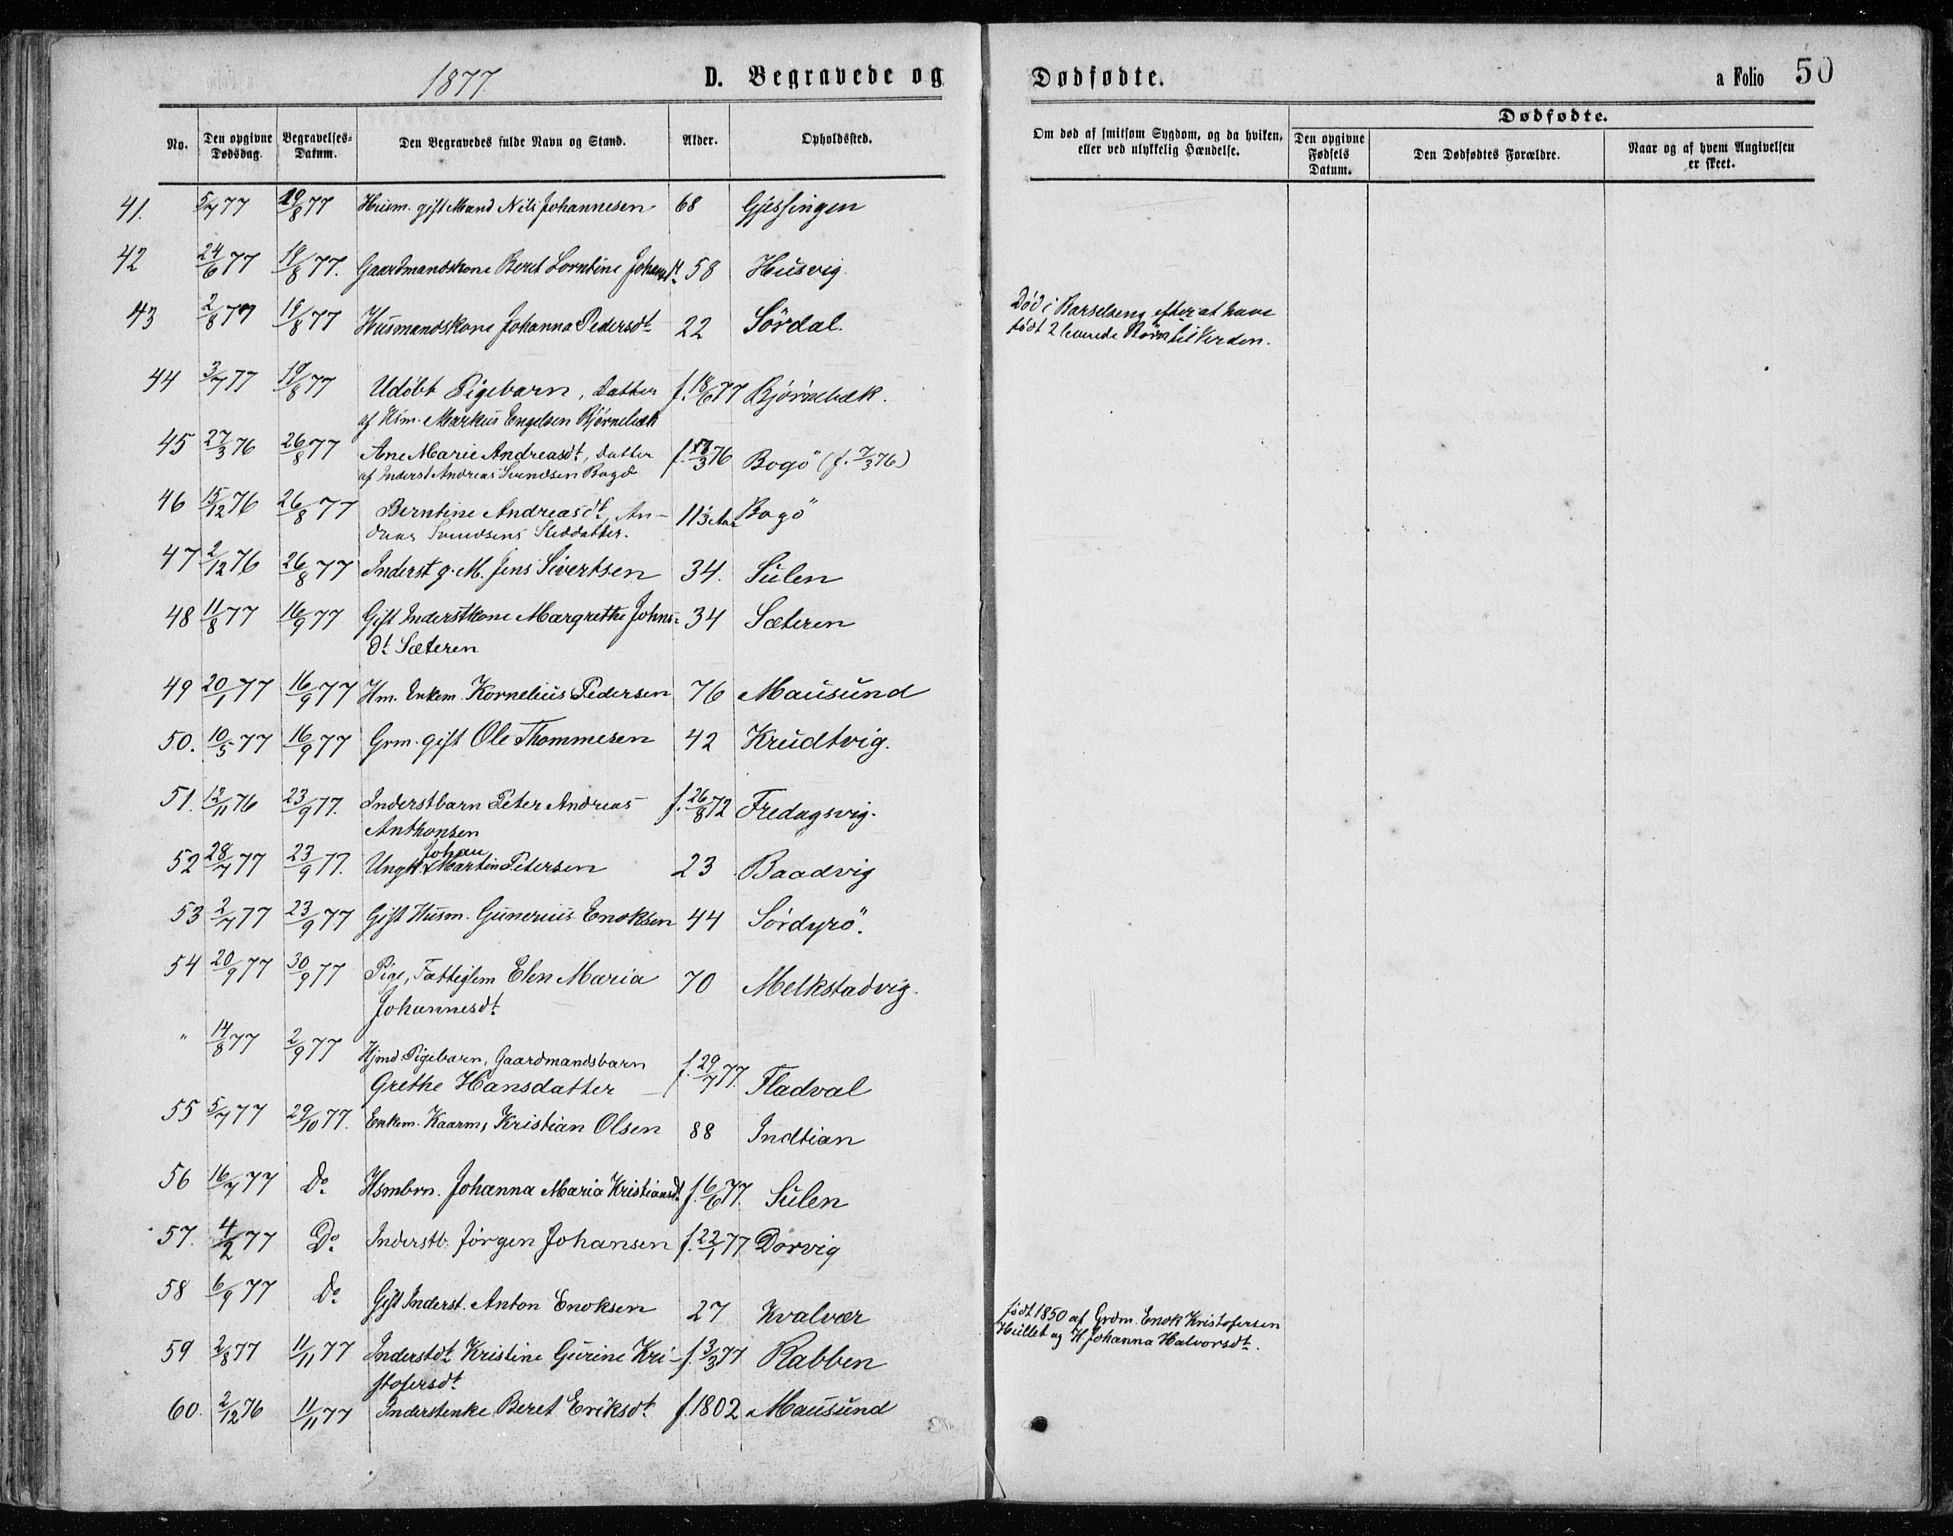 1877.
D. Begravede og
Dødfødte.
a Folio 50
No.
Den opgivne Dødsdag.
Begravelses-Datum.
Den Begravedes fulde Navn og Stand.
Alder.
Opholdssted.
Om død af smitsom Sygdom, og da hvilken,
eller ved ulykkelig Hændelse.
Dødfødte.
Den opgivne Fødsels Datum.
Den Dødfødtes Forældre.
Naar og af hvem Angivelsen
er skeet.
41. 5/7 77 19/8 77 Husm. gift Mand Nils Johannesen 68 Gjessingen
42 24/6 77 19/8 77. Gaardmandskone Beret Lorntine Johansdt. 58 Husvig.
43 2/8 77 19/8 77 Husmandskone Johanna Pedersdt. 22 Sördal.
Død i Barselseng efter at have
født 2 levende Børn til Verden.
44 3/7 77 19/8 77 Udøbt Pigebarn, Datter f. 18/6 77 Bjørnebæk.
af Hsm. Markus Engelsen Bjørnebæk
45 27/3 76 26/8 77 Ane Marie Andreasdt, Datter f. 3 76 Bogö (f. 7/3 76)
af Inderst Andreas Svendsen Bogö
46 15/12 76 26/8 77 Berntine Andreasdt, An- 11½ Aar Bogö
dreas Svendsens Steddatter.
47 2/12 76 26/8 77 Inderst g. M. Jens Sivertsen 34. Sulen
48 11/8 77 16/9 77 Gift Inderstkone Margrethe Johns- 34 Sæteren
dt. Sæteren
49 20/1 77 16/9 77 Hm. Enkem. Kornelius Pedersen 76 Mausund
50. 10/5 77 16/9 77 Grm. gift Ole Thommesen 42 Krudtvig.
51. 12/11 76 23/9 77. Inderstbarn Peter Andreas f. 26/8 72 Fredagsvig.
Anthonsen
52 28/7 77 23/9 77. Ungk. Johan Martin Petersen 23 Baadvig
53 2/7 77 23/9 77 Gift Husm. Gunerius Enoksen 44 Sördyrö.
54 20/9 77 30/9 77 Pige, Fattiglem Elen Maria 70 Melkstadvig.
Johannesdt.
" 14/8 77 2/9 77 Hjmd. Pigebarn, Gaardmandsbarn
Grethe Hansdatter f. 29/7 77. Fladval
55 5/7 77 29/10 77. Enkem. Kaarm, Kristian Olsen 88 Indtian
56 16/7 77 Do. Hsmbrn. Johanna Maria Kristiansdt. f. 6/6 77. Sulen
57. 4/2 77 Do. Inderstb. Jörgen Johansen f. 22/1 77 Dörvig
58 6/9 77 Do. Gift Inderst. Anton Enoksen 27 Kvalvær
født 1850 af Grdm. Enok Kristofersen
Hullet og H Johanna Halvorsdt.
59 2/8 77 11/11 77 Inderstdt. Kristine Gurine Kri- f. 3/3 77 Rabben
stofersdt.
60. 2/12 76 11/11 77 Inderstenke Beret Eriksdt. f. 1802 Mausund